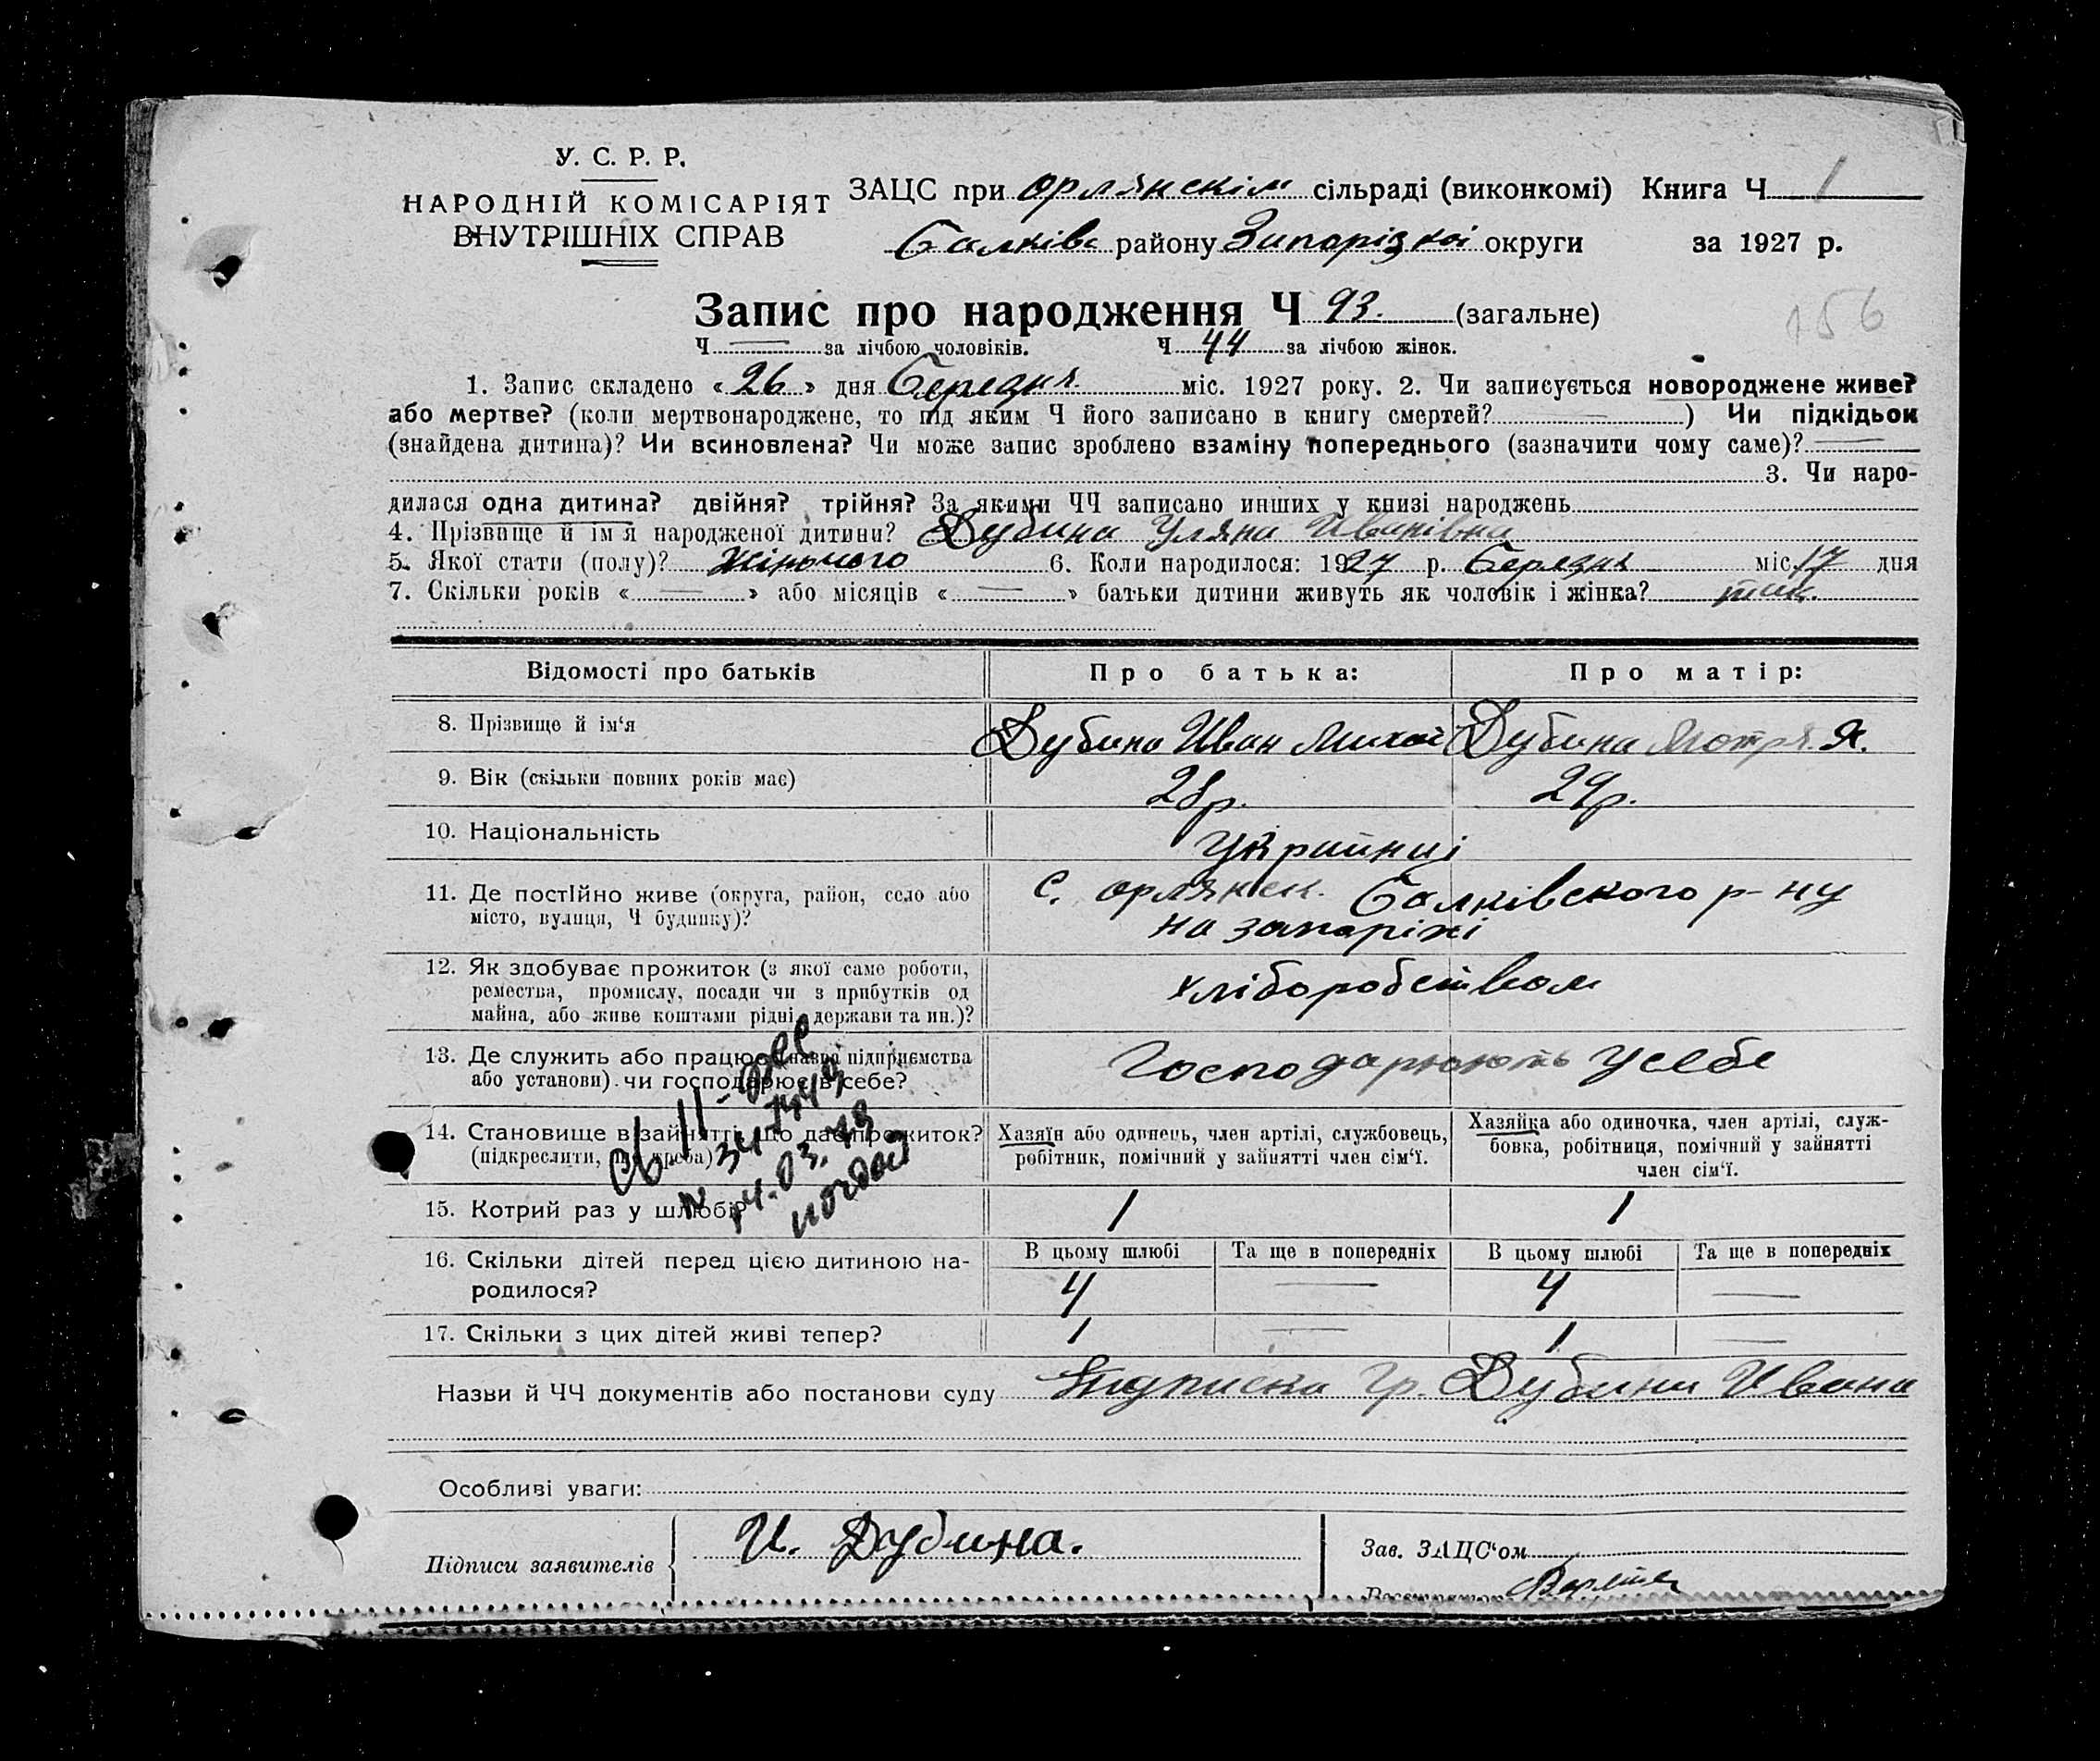 У. С. Р. Р.
НАРОДНІЙ КОМІСАРІЯТ
ВНУТРІШНІХ СПРАВ
ЗАЦС при Орлянскім сільраді (виконкомі) Книга Ч 1
Балківс району Запорізкої округи за 1927 р.
Запис про народження Ч 93. (загальне)
156
Ч — за лічбою чоловіків. Ч 44 за лічбою жінок.
1. Запис складено «26» дня Березня міс. 1927 року. 2. Чи записується новороджене живе?
або мертве? (коли мертвонароджене, то під яким Ч його записано в книгу смертей? — ) Чи підкідьок
(знайдена дитина)? Чи всиновлена? Чи може запис зроблено взаміну попереднього (зазначити чому саме)? —
3. Чи наро-
дилася одна дитина? двійня? трійня? За якими ЧЧ записано инших у книзі народжень
4. Прізвище й ім'я народженої дитини? Дубина Уляна Иванівна
5. Якої стати (полу)? Жіночого 6. Коли народилося: 1927 р. Березня міс. 17 дня
7. Скільки років « — » або місяців « — » батьки дитини живуть як чоловік і жінка? так.
Відомості про батьків Про батька: Про матір:
8. Прізвище й ім'я Дубина Иван Михай Дубина Мотря Я.
9. Вік (скільки повних років має) 28р. 29р.
10. Національність Українці
11. Де постійно живе (округа, район, село або
місто, вулиця, Ч будинку)?
с. Орлянск. Балківского р-ну
на запоріжі
12. Як здобуває прожиток (з якої саме роботи,
ремества, промислу, посади чи з прибутків од
майна, або живе коштами рідні, держави та ин.)?
хліборобством
13. Де служить або працює (назва підприємства
або установи) чи господарює в себе?
Господарюють у себе
14. Становище в зайнятті, що дає прожиток?
(підкреслити, що треба)
Хазяїн або одинець, член артілі, службовець,
робітник, помічний у зайнятті член сім'ї.
Хазяйка або одиночка, член артілі, служ-
бовка, робітниця, помічний у зайнятті
член сім'ї.
14.03.78
15. Котрий раз у шлюбі? 1 1
16. Скільки дітей перед цією дитиною на-
родилося?
В цьому шлюбі Та ще в попередніх В цьому шлюбі Та ще в попередніх
4 — 4 —
17. Скільки з цих дітей живі тепер? 1 — 1 —
Назви й ЧЧ документів або постанови суду Підписка гр. Дубини Ивана
Особливі уваги:
Підписи заявителів И. Дубина.
Зав. ЗАЦС'ом